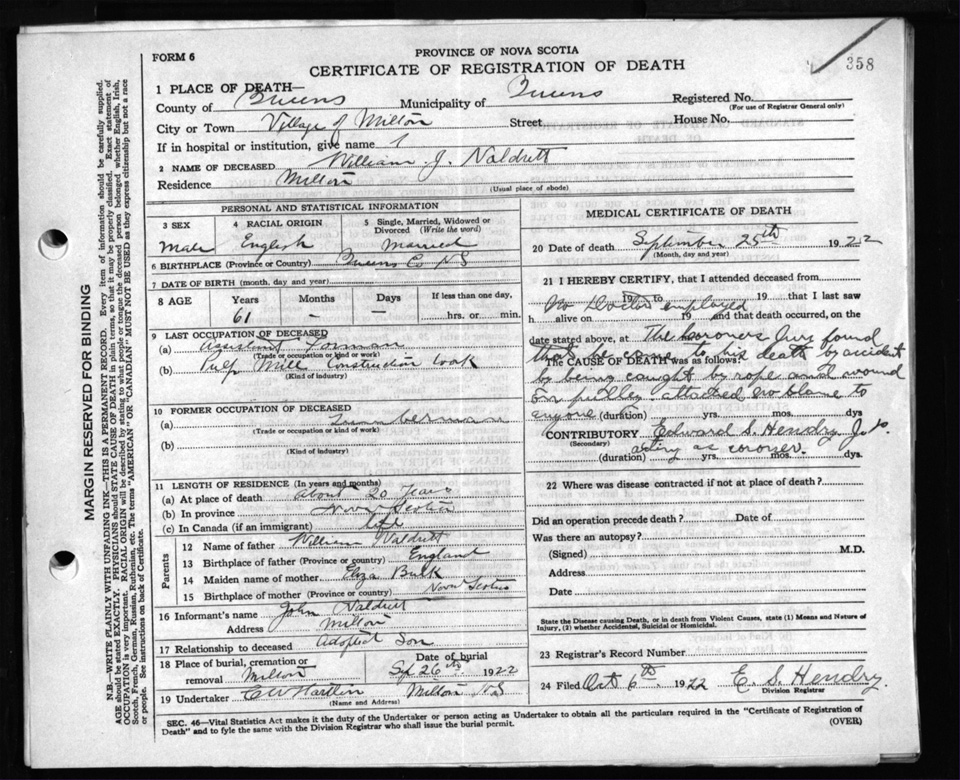 358
FORM 6
PROVINCE OF NOVA SCOTIA
CERTIFICATE OF REGISTRATION OF DEATH
1 PLACE OF DEATH—
County of Queens Municipality of Queens Registered No.
(For use of Registrar General only)
City or Town Village of Milton Street House No.
If in hospital or institution, give name
2 NAME OF DECEASED William J. Naldrett
Residence Milton
(Usual place of abode)
PERSONAL AND STATISTICAL INFORMATION
3 SEX 4 RACIAL ORIGIN 5 Single, Married, Widowed or Divorced (Write the word)
Male English Married
6 BIRTHPLACE (Province or Country) Queens Co NS
7 DATE OF BIRTH (month, day and year)
8 AGE Years Months Days If less than one day,
61 – – hrs. or min.
9 LAST OCCUPATION OF DECEASED
(a) Assistant Forman
(Trade or occupation or kind of work)
(b) Pulp Mill Construction Cook
(Kind of industry)
10 FORMER OCCUPATION OF DECEASED
(a) Lumberman
(Trade or occupation or kind of work)
(b)
(Kind of industry)
11 LENGTH OF RESIDENCE (In years and months)
(a) At place of death About 20 Years
(b) In province Nova Scotia
(c) In Canada (if an immigrant) life
Parents
12 Name of father William Naldrett
13 Birthplace of father (Province or country) England
14 Maiden name of mother Eliza Burk
15 Birthplace of mother (Province or country) Nova Scotia
16 Informant's name John Naldrett
Address Milton
17 Relationship to deceased Adopted Son
18 Place of burial, cremation or removal Milton Date of burial Sep 26th 1922
19 Undertaker C W Hartlin Milton NS
(Name and Address)
MEDICAL CERTIFICATE OF DEATH
20 Date of death September 25th 1922
(Month, day and year)
21 I HEREBY CERTIFY, that I attended deceased from
No Doctor employed 19 to 19 that I last saw
h alive on 19 and that death occurred, on the
date stated above, at The Coroners Jury found
that he came to his death by accident
The CAUSE OF DEATH was as follows:
by being caught by rope and wound
on pulley attached no blame to
anyone (duration) yrs. mos. dys
CONTRIBUTORY Edward S. Hendry J.P.
(Secondary) acting as coroner.
(duration) yrs. mos. dys.
22 Where was disease contracted if not at place of death?
Did an operation precede death? Date of
Was there an autopsy?
(Signed) M.D.
Address
Date
State the Disease causing Death, or in death from Violent Causes, state (1) Means and Nature of Injury, (2) whether Accidental, Suicidal or Homicidal.
23 Registrar's Record Number
24 Filed Oct 6th 1922 E. S. Hendry.
Division Registrar
SEC. 46—Vital Statistics Act makes it the duty of the Undertaker or person acting as Undertaker to obtain all the particulars required in the "Certificate of Registration of
Death" and to fyle the same with the Division Registrar who shall issue the burial permit. (OVER)
MARGIN RESERVED FOR BINDING
N.B.—WRITE PLAINLY WITH UNFADING INK—THIS IS A PERMANENT RECORD. Every item of information should be carefully supplied.
AGE should be stated EXACTLY. PHYSICIANS should STATE CAUSE OF DEATH in plain terms, so that it may be properly classified. Exact statement of
OCCUPATION is very important. RACIAL ORIGIN will be described by stating to what people or tongue the deceased person belonged whether English, Irish,
Scotch, French, German, Russian, Ruthenian, etc. The terms "AMERICAN" OR "CANADIAN" MUST NOT BE USED as they express citizenship but not a race
or people. See instructions on back of Certificate.